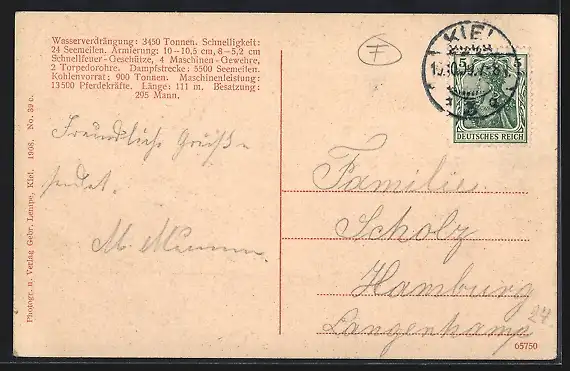 Wasserverdrängung: 3450 Tonnen. Schnelligkeit:
24 Seemeilen. Armierung: 10–10,5 cm, 8–5,2 cm
Schnellfeuer-Geschütze, 4 Maschinen-Gewehre,
2 Torpedorohre. Dampfstrecke: 5500 Seemeilen.
Kohlenvorrat: 900 Tonnen. Maschinenleistung:
13500 Pferdekräfte. Länge: 111 m. Besatzung:
295 Mann.
F
KIEL
5
DEUTSCHES REICH
Freundliche Grüße
sendet.
M.
Familie
Scholz
Hamburg
Langenhamp
24
Photogr. u. Verlag Gebr. Lempe, Kiel. 1908. No. 39 c.
65750